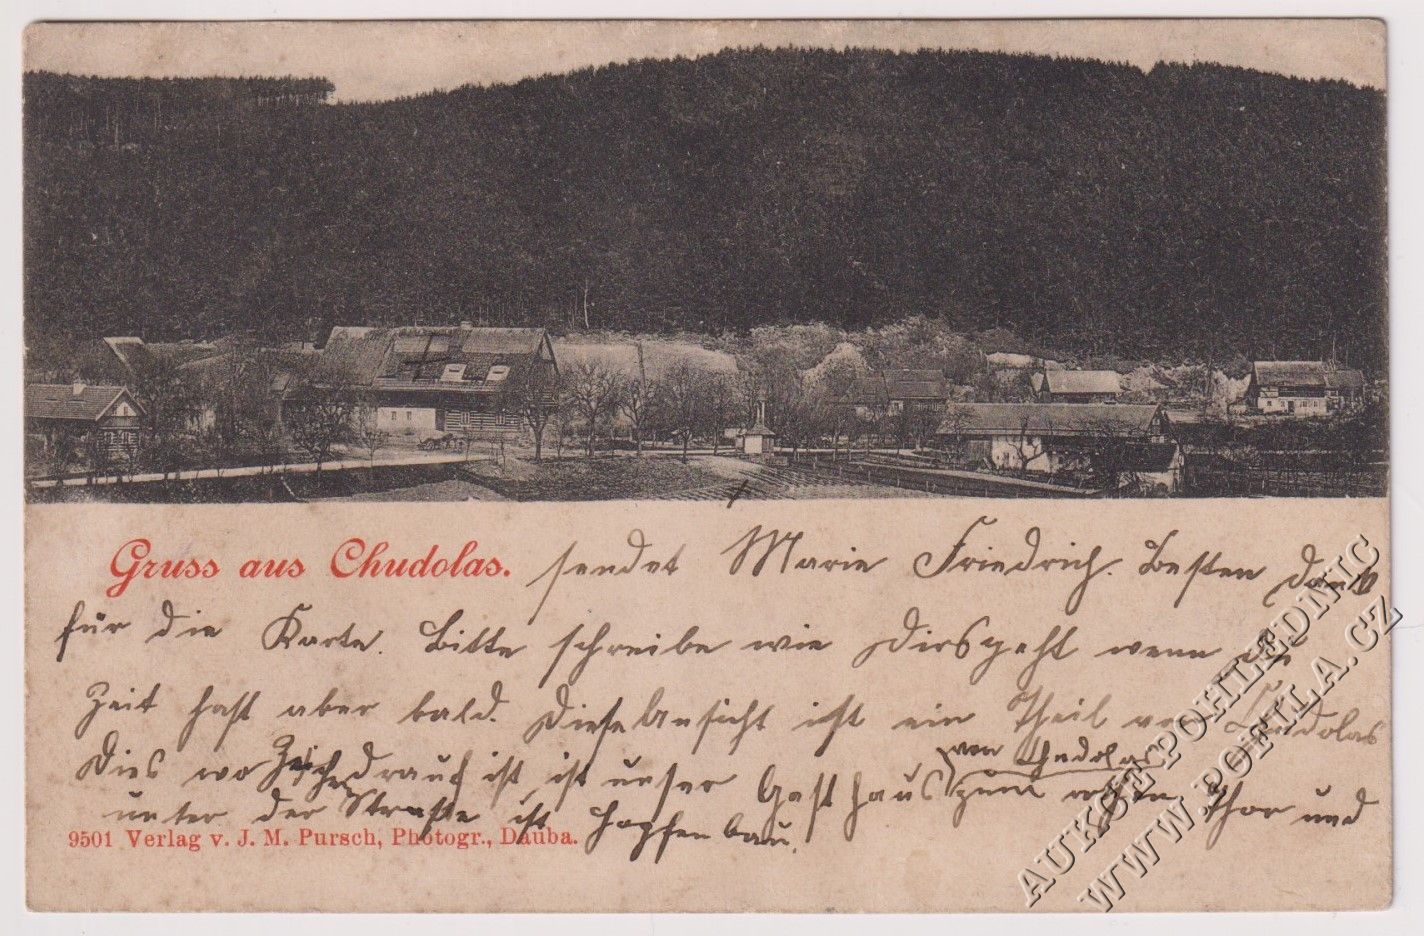 Gruss aus Chudolas. sendet Marie Friedrich. Besten Dank
für die Karte. Bitte schreibe wie Dirs geht wenn
Zeit hast aber bald. Diese Ansicht ist ein Theil von Chudolas
von Chudolas
Dies wo Zeichen drauf ist, ist unser Gasthaus zum roten Thor und
unter der Straße ist Hopfenbau.
9501 Verlag v. J. M. Pursch, Photogr., Dauba.
AUKCE POHLEDNIC
WWW.POFILA.CZ